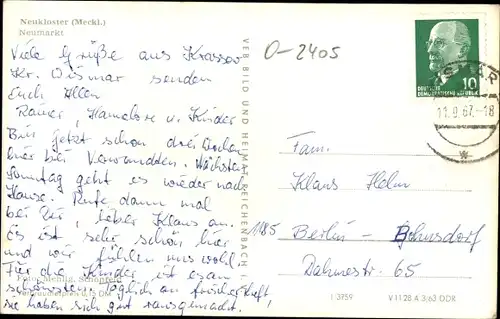 Neukloster (Meckl.)
Neumarkt
Viele Grüße aus Krassow
Kr. Wismar senden
Euch Allen
Rainer, Hannelore u. Kinder
Bin jetzt schon drei Wochen
hier bei Verwandten. Nächsten
Sonntag geht es wieder nach
Hause. Rufe dann mal
bei Dir, lieber Klaus an.
Es ist sehr schön hier
und wir fühlen uns wohl.
Für die Kinder ist es am
schönsten. Täglich an frischer Luft,
sie haben sich gut rausgemacht.
VEB BILD UND HEIMAT REICHENBACH i. V.
0-2405
10
DEUTSCHE
DEMOKRATISCHE REPUBLIK
WISMAR
11.9.67.-18
Fam.
Klaus Helm
1185 Berlin-Bohnsdorf
Dahmestr. 65
I 3759 V 11 28 A 3/63 DDR